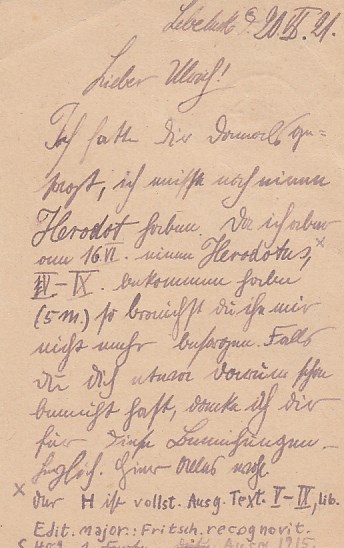 20.VI.21.
Lieber Ulrich!
Ich hatte Dir damals ge-
sagt, ich müsse noch einen
Herodot haben. Da ich aber
am 16.VI. einen Herodotus, x
IV–IX. bekommen habe
(5 M.) so brauchst du ihn mir
nicht mehr besorgen. Falls
du dich etwa darum schon
bemüht hast, danke ich dir
für diese Bemühungen –
x der H ist vollst. Ausg. Text. V–IX, lib.
Edit. major.: Fritsch. recognovit.
1915